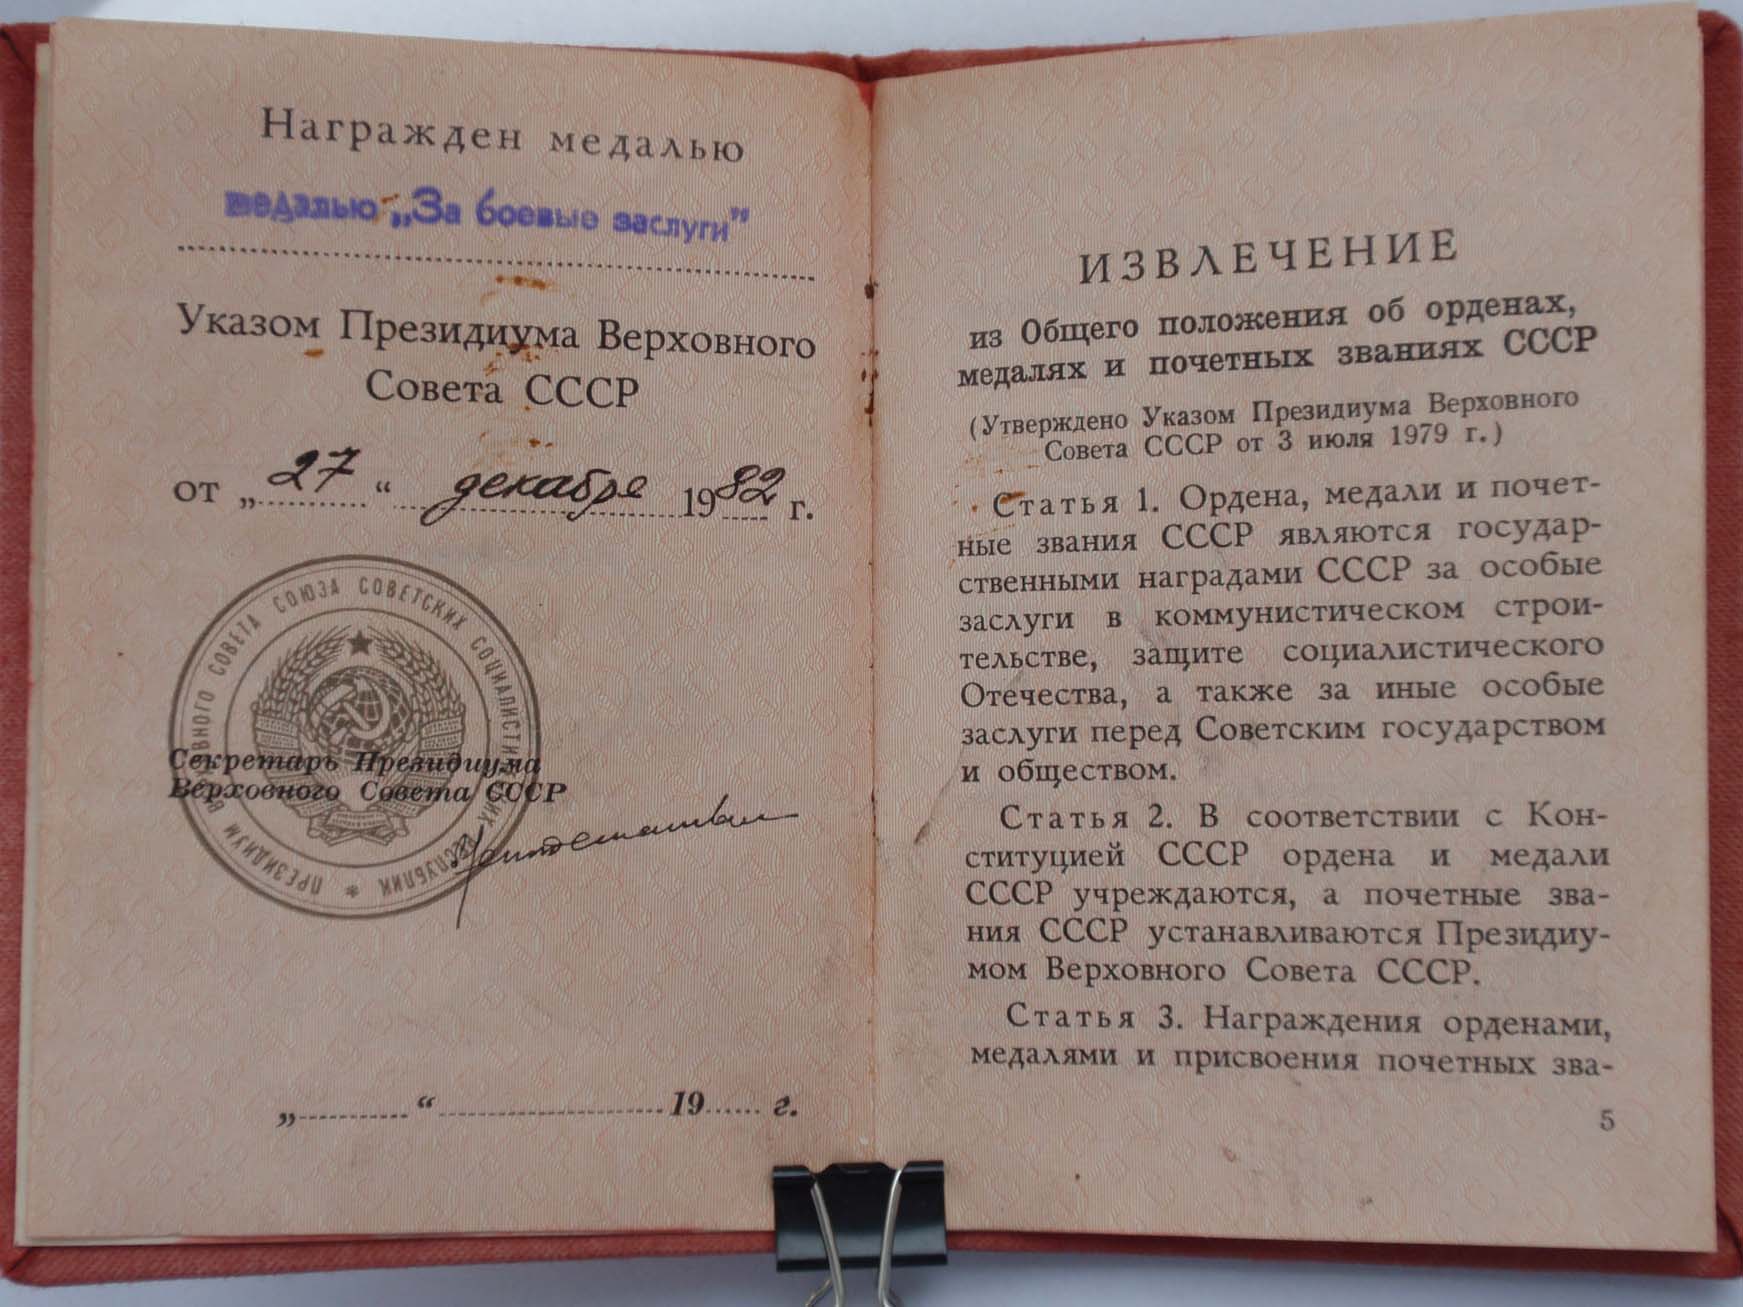 Награжден медалью
медалью „За боевые заслуги"
Указом Президиума Верховного
Совета СССР
от „27“ декабря 1982 г.
ПРЕЗИДИУМ ВЕРХОВНОГО СОВЕТА СОЮЗА СОВЕТСКИХ СОЦИАЛИСТИЧЕСКИХ РЕСПУБЛИК *
Секретарь Президиума
Верховного Совета СССР
„...........“ ........................ 19...... г.
ИЗВЛЕЧЕНИЕ
из Общего положения об орденах,
медалях и почетных званиях СССР
(Утверждено Указом Президиума Верховного
Совета СССР от 3 июля 1979 г.)
Статья 1. Ордена, медали и почет-
ные звания СССР являются государ-
ственными наградами СССР за особые
заслуги в коммунистическом строи-
тельстве, защите социалистического
Отечества, а также за иные особые
заслуги перед Советским государством
и обществом.
Статья 2. В соответствии с Кон-
ституцией СССР ордена и медали
СССР учреждаются, а почетные зва-
ния СССР устанавливаются Президиу-
мом Верховного Совета СССР.
Статья 3. Награждения орденами,
медалями и присвоения почетных зва-
5